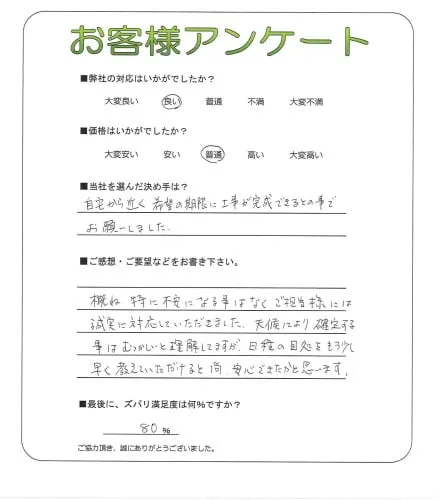 お客様アンケート
■弊社の対応はいかがでしたか?
大変良い 良い 普通 不満 大変不満
■価格はいかがでしたか?
大変安い 安い 普通 高い 大変高い
■当社を選んだ決め手は?
自宅から近く 希望の期限に工事が完成できるとの事で
お願いしました。
■ご感想・ご要望などをお書き下さい。
概ね 特に不安になる事はなくご担当様には
誠実に対応していただきました。天候により確定する
事はむつかしいと理解してますが、日程の目処をもう少し
早く教えていただけると尚、安心できたかと思います。
■最後に、ズバリ満足度は何%ですか?
80 %
ご協力頂き、誠にありがとうございました。